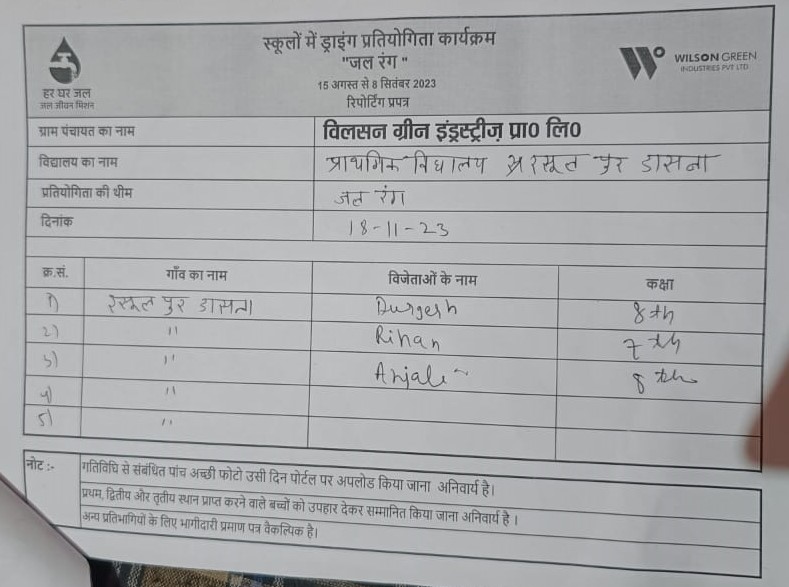 स्कूलों में ड्राइंग प्रतियोगिता कार्यक्रम
"जल रंग "
15 अगस्त से 8 सितंबर 2023
रिपोर्टिंग प्रपत्र
हर घर जल
जल जीवन मिशन
WILSON GREEN
INDUSTRIES PVT LTD
ग्राम पंचायत का नाम विलसन ग्रीन इंड्रस्ट्रीज़ प्रा० लि०
विद्यालय का नाम प्राथमिक विद्यालय पुर डासना
प्रतियोगिता की थीम जल रंग
दिनांक 18-11-23
क्र.सं. गाँव का नाम विजेताओं के नाम कक्षा
1) रसूल पुर डासना Durgesh 8th
2) " Rihan 7th
3) " Anjali 8th
4) "
5) "
नोट :- गतिविधि से संबंधित पांच अच्छी फोटो उसी दिन पोर्टल पर अपलोड किया जाना अनिवार्य है।
प्रथम, द्वितीय और तृतीय स्थान प्राप्त करने वाले बच्चों को उपहार देकर सम्मानित किया जाना अनिवार्य है ।
अन्य प्रतिभागियों के लिए भागीदारी प्रमाण पत्र वैकल्पिक है।